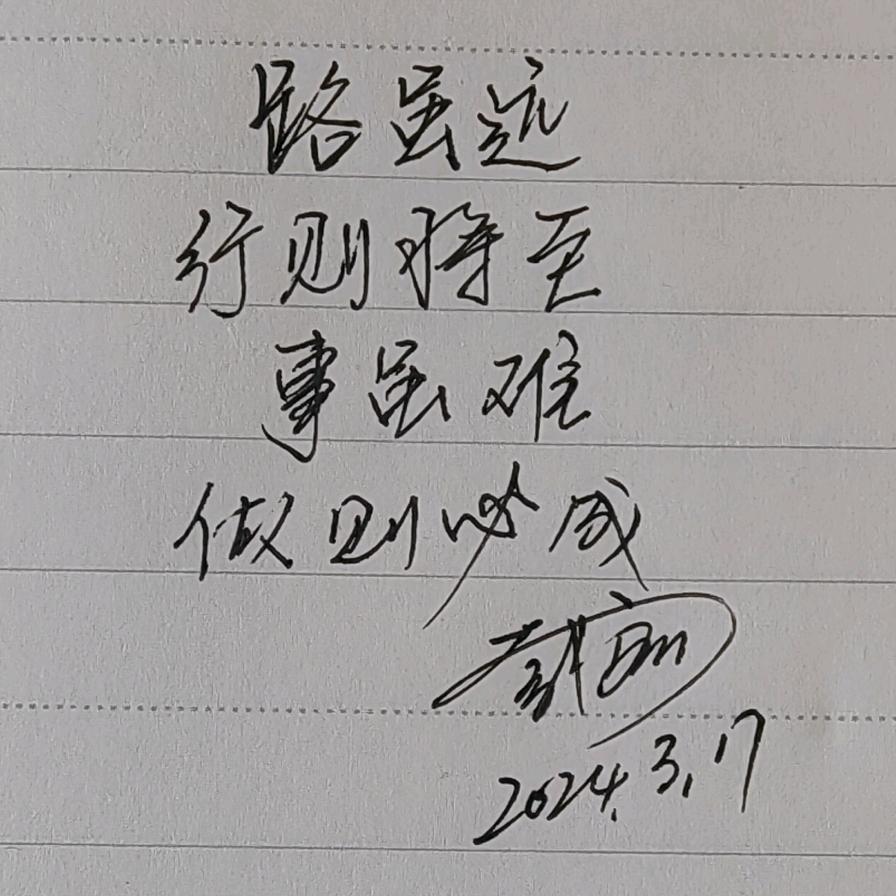 路虽远
行则将至
事虽难
做则必成
2024.3.17